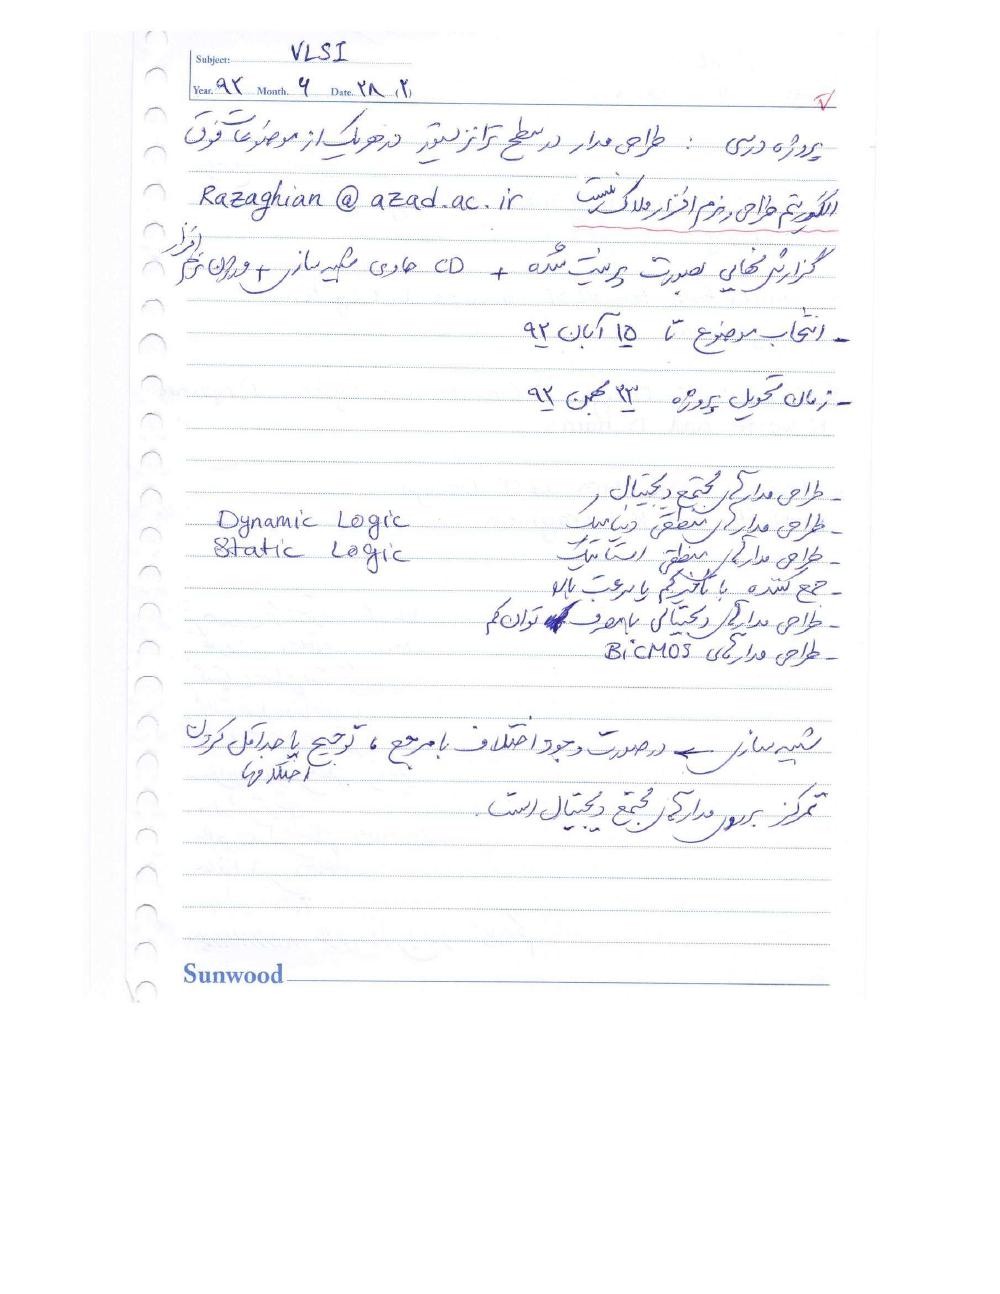 Subject: VLSI
Year. ۹۲ Month. ۶ Date. ۲۸ (۲)
۷
پروژه درسی : طراحی مدار در سطح ترانزیستور در هر یک از موضوعات فوق
الگوریتم طراحی و نرم افزار ملاک نیست Razaghian @ azad.ac.ir
گزارش نهایی بصورت پرینت شده + CD حاوی شبیه سازی + ورژن نرم افزار
- انتخاب موضوع تا ۱۵ آبان ۹۲
- زمان تحویل پروژه ۲۳ بهمن ۹۲
- طراحی مدارهای مجتمع دیجیتال
- طراحی مدارهای منطقی دینامیک Dynamic Logic
- طراحی مدارهای منطقی استاتیک Static Logic
- جمع کننده با تأخیر کم یا سرعت بالا
- طراحی مدارهای دیجیتالی با مصرف توان کم
- طراحی مدارهای BiCMOS
شبیه سازی ← در صورت وجود اختلاف با مرجع ، توجیح یا حداقل کردن اختلافها
تمرکز بر روی مدارهای مجتمع دیجیتال است.
Sunwood